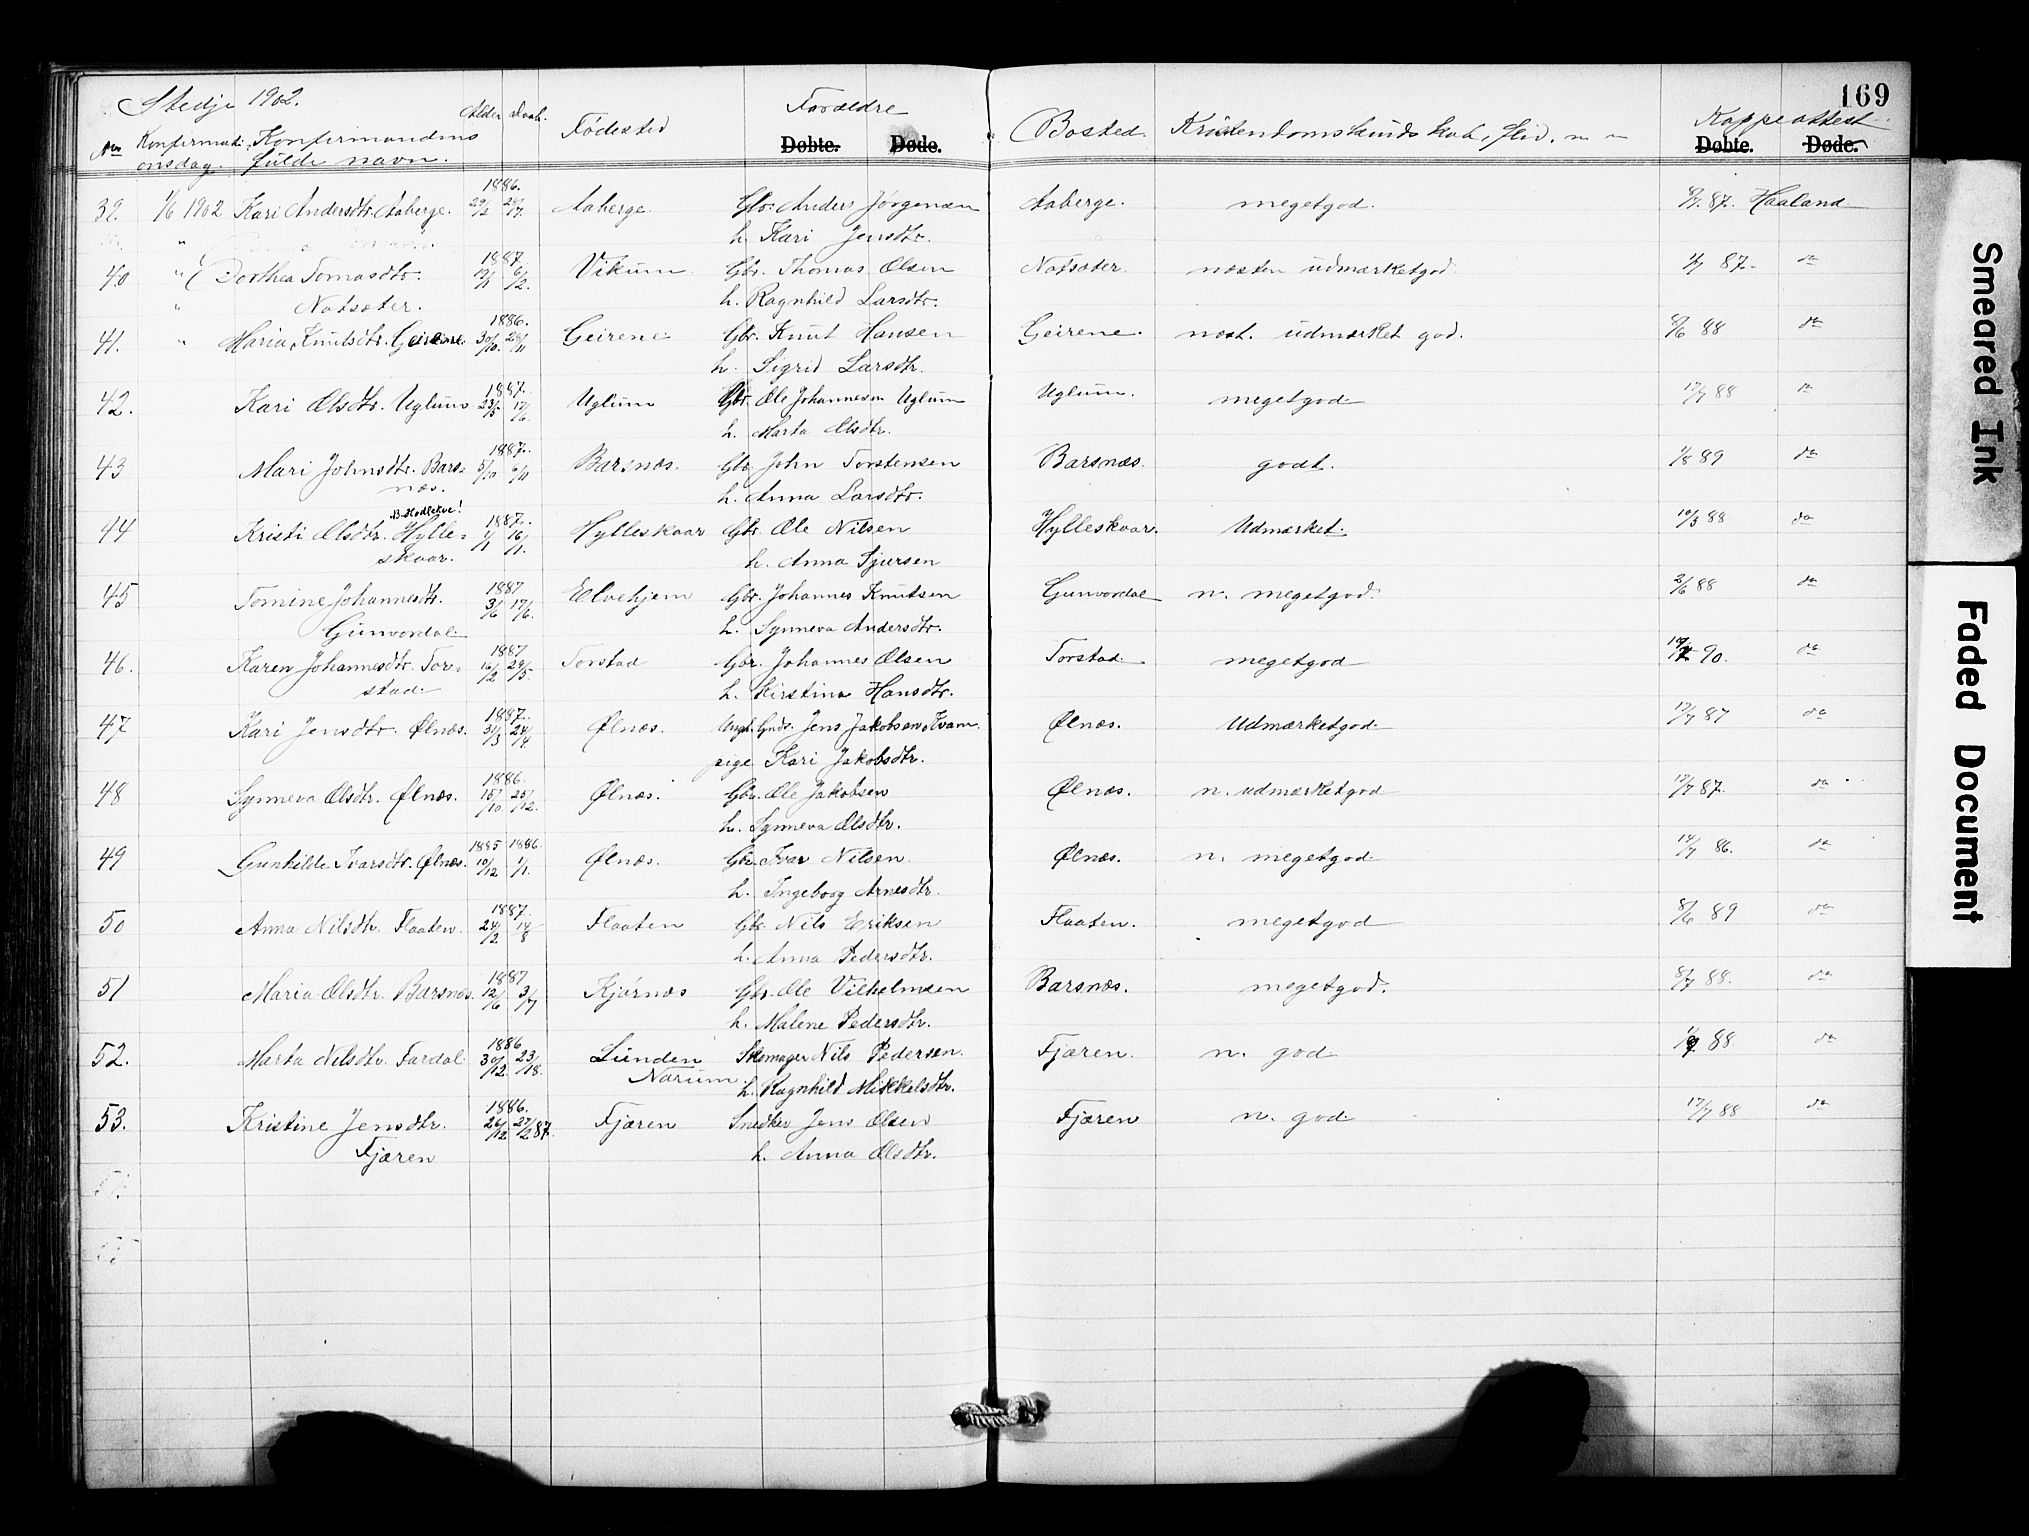 169
Stedje 1902.
No Konfirmati- onsdag. Konfirmandens fulde navn. Alder Daab. Fødested Forældre Bosted. Kristendomskundskab, flid. m m Koppeattest
Døbte. Døde. Døbte. Døde.
1886.
39. 1/6 1902 Kari Andersdtr. Aaberge. 29/2 29/7. Aaberge. Gbr. Anders Jørgensen Aaberge. megetgod. 8/7. 87. Haaland
h. Kari Jensdtr.
1887.
40 " Dorthea Tomasdtr. 12/1 6/2. Vikum. Gbr. Thomas Olsen Natsæter. næsten udmærketgod 4/7 87. do
" Natsæter. h. Ragnhild Larsdtr.
1886.
41. " Maria Knutsdtr. Geirene. 30/10. 28/11 Geirene Gbr. Knut Hansen Geirene. næst. udmærket god. 8/6 88 do
h. Sigrid Larsdtr.
1887.
42. Kari Olsdtr. Uglum 23/5 17/6. Uglum Gbr. Ole Johannesen Uglum Uglum. megetgod 17/7 88 do
h. Marta Olsdtr.
1887.
43 Mari Johnsdtr. Bars- 5/10 6/11 Barsnæs. Gbr. John Torstensen Barsnæs. godt. 1/8 89 do
næs. h. Anna Larsdtr.
B. Hodlekve!
1887.
44 Kristi Olsdtr. Hylle- 1/1 16/1. Hylleskaar Gbr. Ole Nilsen Hylleskaar. Udmærket. 10/3 88 do
skaar. h. Anna Sjursen
1887
45 Tomine Johannesdtr. 3/6 17/6. Elvehjem Gbr. Johannes Knutsen Gunvordal n. megetgod. 2/6 88 do
Gunvordal. h. Synneva Andersdtr.
1887
46. Karen Johannesdtr. Tor- 16/2 29/5. Torstad Gbr. Johannes Olsen Torstad. megetgod 90. do
stad h. Kirstina Hansdtr.
1887.
47 Kari Jensdtr. Ølnæs. 31/3 24/4 Ølnæs. Ungk. Gmds. Jens Jakobsen Kvam. Ølnæs. Udmærketgod. 17/7 87 do
pige Kari Jakobsdtr.
1886.
48 Synneva Olsdtr. Ølnæs. 15/10 25/12. Ølnæs. Gbr. Ole Jakobsen Ølnæs. n. udmærketgod 17/7 87. do
h. Synneva Olsdtr.
1885 1886.
49 Gunhilde Ivarsdtr. Ølnæs. 10/12 1/1. Ølnæs. Gbr. Ivar Nilsen. Ølnæs. n. megetgod 14/7 86. do
h. Ingeborg Arnesdtr.
1887.
50 Anna Nilsdtr. Flaaten. 24/2 14/8 Flaaten Gbr. Nils Eriksen Flaaten. megetgod 8/6 89 do
h. Anna Pedersdtr.
1887
51 Maria Olsdtr. Barsnæs. 12/6 3/7 Kjørnæs Gbr. Ole Vilhelmsen Barsnæs. megetgod. 8/7 88. do
h. Malene Pedersdtr.
1886
52. Marta Nilsdtr. Fardal 30/12. 23/18. Lunden Skomager Nils Pedersen. Fjæren. n. god 88 do
Narum. h. Ragnhild Mikkelsdtr.
1886.
53. Kristine Jensdtr. 26/12 27/2 87. Fjæren Snedker Jens Olsen Fjæren n. god 17/7 88 do
Fjæren h. Anna Olsdtr.
Smeared Ink
Faded Document